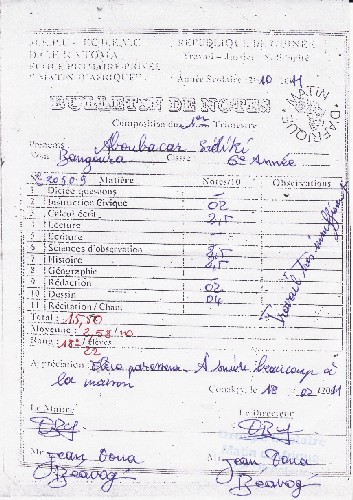 REPUBLIQUE DE GUINEE
D.C.E RATOMA
Travail - Justice - Solidarité
ECOLE PRIMAIRE PRIVEE
"MATIN D'AFRIQUE"
Année Scolaire 2010 2011
MATIN D'AFRIQUE
BULLETIN DE NOTES
Composition du 1er Trimestre
Prénoms Aboubacar Sidiki
Nom Bangoura Classe 6e Année
N° Matière Notes/10 Observations
1 Dictée questions
2 Instruction Civique 02
3 Calcul écrit 2,5
4 Lecture
5 Ecriture
6 Sciences d'observation
7 Histoire 2,5
8 Géographie
9 Rédaction 02
10 Dessin 04
11 Récitation / Chant
Travail très insuffisant
Total : 15,50
Moyenne : 2,58/10
Rang : 18e /élèves
22
Appréciation : Elève paresseux. A suivre beaucoup à
la maison
Conakry, le 18 02 2011
Le Maître Le Directeur
Mr Jean Bona Mr Jean Bona
Beavogui Beavogui